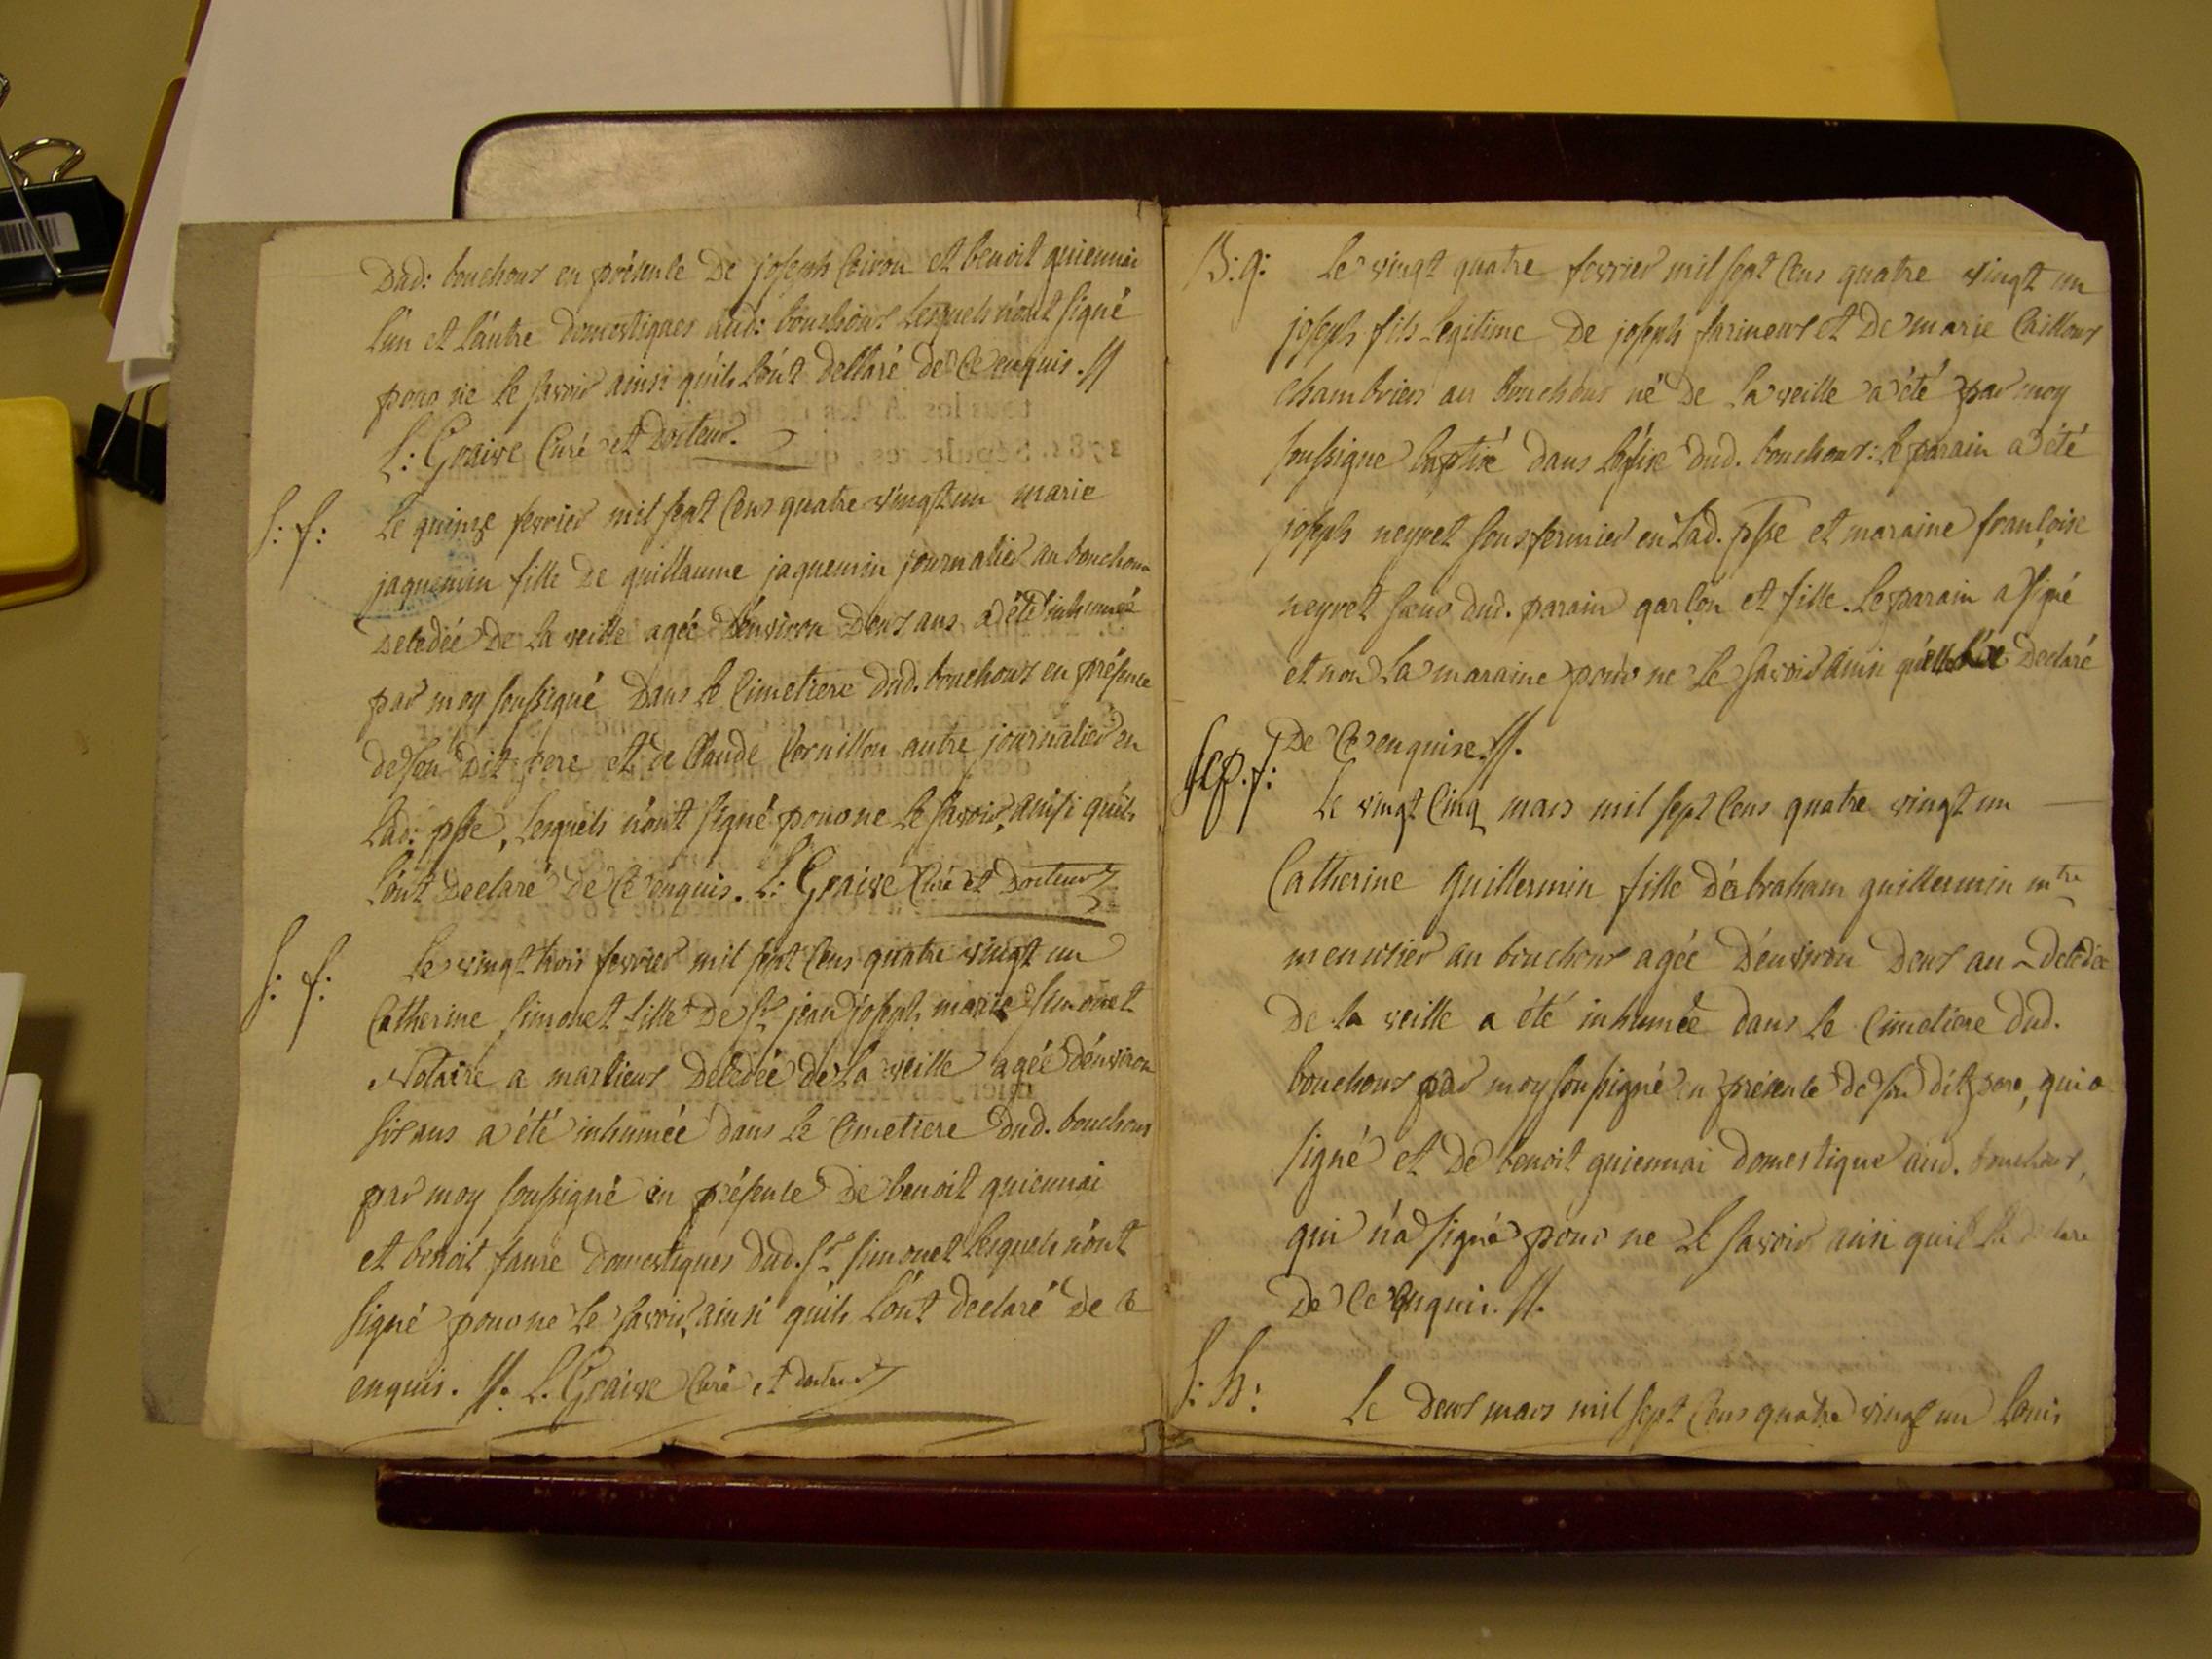 Dud: bouchoux en présence De joseph Coiron et benoit guiennai
l'un et l'autre domestiques aud: bouchoux lesquels n'ont signé
pour ne le savoir ainsi qu'ils l'ont declaré de ce enquis. //
L: Graive Curé et Docteur.
S: f: Le quinze fevrier mil sept cens quatre vingt un marie
jaquemin fille de guillaume jaquemin journalier au bouchoux
decedée de la veille agée d'environ Deux ans a été inhumée
par moy soussigné Dans le Cimetiere dud. bouchoux en présence
de son Dit pere et de Claude Cornillon autre journalier en
lad: psse, lesquels n'ont signé pour ne le savoir, ainsi qu'ils
l'ont declaré de ce enquis. L: Graive Curé et Docteur
S: f: Le vingt trois fevrier mil sept cens quatre vingt un
Catherine simonet fille de Sr jean joseph marie simonet
Notaire a martieux decedée de la veille agée d'environ
six ans a été inhumée dans le cimetiere dud. bouchoux
par moy soussigné en présence de benoit guiennai
et benoit faure domestiques dud. Sr simonet lesquels n'ont
signé pour ne le savoir, ainsi qu'ils l'ont declaré de ce
enquis. //. L. Graive Curé et docteur
B: g: Le vingt quatre fevrier mil sept cens quatre vingt un
joseph fils legitime De joseph farineux et De marie Cailloux
chambrier au bouchoux né de la veille a été par moy
soussigné baptisé dans l'église dud. bouchoux: le parain a été
joseph neyret sousfermier en lad. psse et maraine françoise
neyret sœur dud. parain garçon et fille. Le parain a signé
et non la maraine pour ne le savoir ainsi qu'elle l'a declaré
De ce enquise. //.
Sep. f: Le vingt cinq mars mil sept cens quatre vingt un
Catherine guillermin fille d'abraham guillermin mtre
menusier au bouchoux agée d'environ Deux an decedée
De la veille a été inhumée dans le cimetiere dud.
bouchoux par moy soussigné en présence de son dit pere, qui a
signé et de benoit guiennai domestique aud. bouchoux,
qui n'a signé pour ne le savoir ainsi qu'il l'a declaré
De ce enquis. //.
S: h: Le Deux mars mil sept cens quatre vingt un Louis